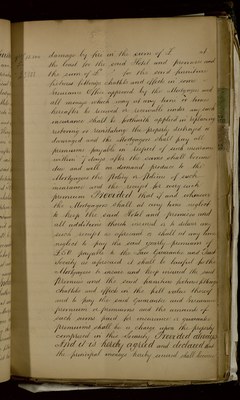 damage by fire in the sum of £ at
the least for the said Hotel and premises and
the sum of £ for the said furniture
fixtures fittings chattels and effects in some
Insurance Office approved by the Mortgagee and
all moneys which may at any time or times
hereafter be received or receivable under any such
insurance shall be forthwith applied in replacing
restoring or reinstating the property destroyed or
damaged and the Mortgagor shall pay all
premiums payable in respect of such insurance
within 7 days after the same shall become
due and will on demand produce to the
Mortgagee the Policy or Policies of such
insurance and the receipt for every such
premium Provided that if and whenever
the Mortgagor shall at any time neglect
to keep the said Hotel and premises and
all additions thereto insured or to deliver any
such receipt as aforesaid or shall at any time
neglect to pay the said yearly premium of
payable to the Law Guarantee and Trust
Society as aforesaid it shall be lawful for the
Mortgagee to insure and keep insured the said
Premises and the said furniture fixtures fittings
chattels and effects in the full value thereof
and to pay the said Guarantee and Insurance
premiums or premiums and the amount of
such sums paid for insurance or guarantee
premiums shall be a charge upon the property
comprised in this Security Provided always
And it is hereby agreed and declared that
the principal moneys hereby secured shall become